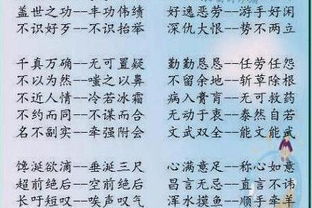 盖世之功--丰功伟绩
不识好歹--不识抬举
千真万确--无可置疑
不以为然--嗤之以鼻
不近人情--冷若冰霜
不约而同--不谋而合
名不副实--牵强附会
馋涎欲滴--垂涎三尺
超前绝后--空前绝后
长吁短叹--唉声叹气
好逸恶劳--游手好闲
深仇大恨--势不两立
勤勤恳恳--任劳任怨
不留余地--斩草除根
病入膏肓--无可救药
无动于衷--泰然自若
文武双全--能文能武
心满意足--称心如意
昌言无忌--直言不讳
浑水摸鱼--顺手牵羊